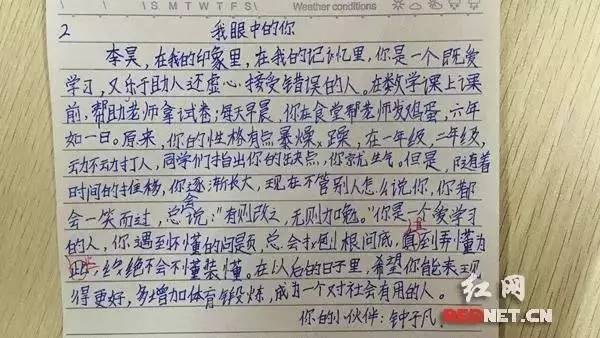 S M T W T F S Weather conditions
2 我眼中的你
李昊，在我的印象里，在我的记忆里，你是一个既爱
学习，又乐于助人还虚心接受错误的人。在数学课上课
前，帮助老师拿试卷；每天早晨，你在食堂帮老师发鸡蛋，六年
如一日。原来，你的性格有点暴燥躁，在一年级，二年级，
动不动打人，同学们指出你的缺点，你就生气。但是，随着
时间的推移，你逐渐长大，现在不管别人怎么说你，你都
会一笑而过，总会说："有则改之，无则加勉。"你是一个爱学习
的人，你遇到不懂的问题，总会打倒根问底，直到弄懂为
止，绝不会不懂装懂。在以后的日子里，希望你能表现
得更好，多增加体育锻炼，成为一个对社会有用的人。
你的小伙伴：钟子凡
红网
REDNET.CN